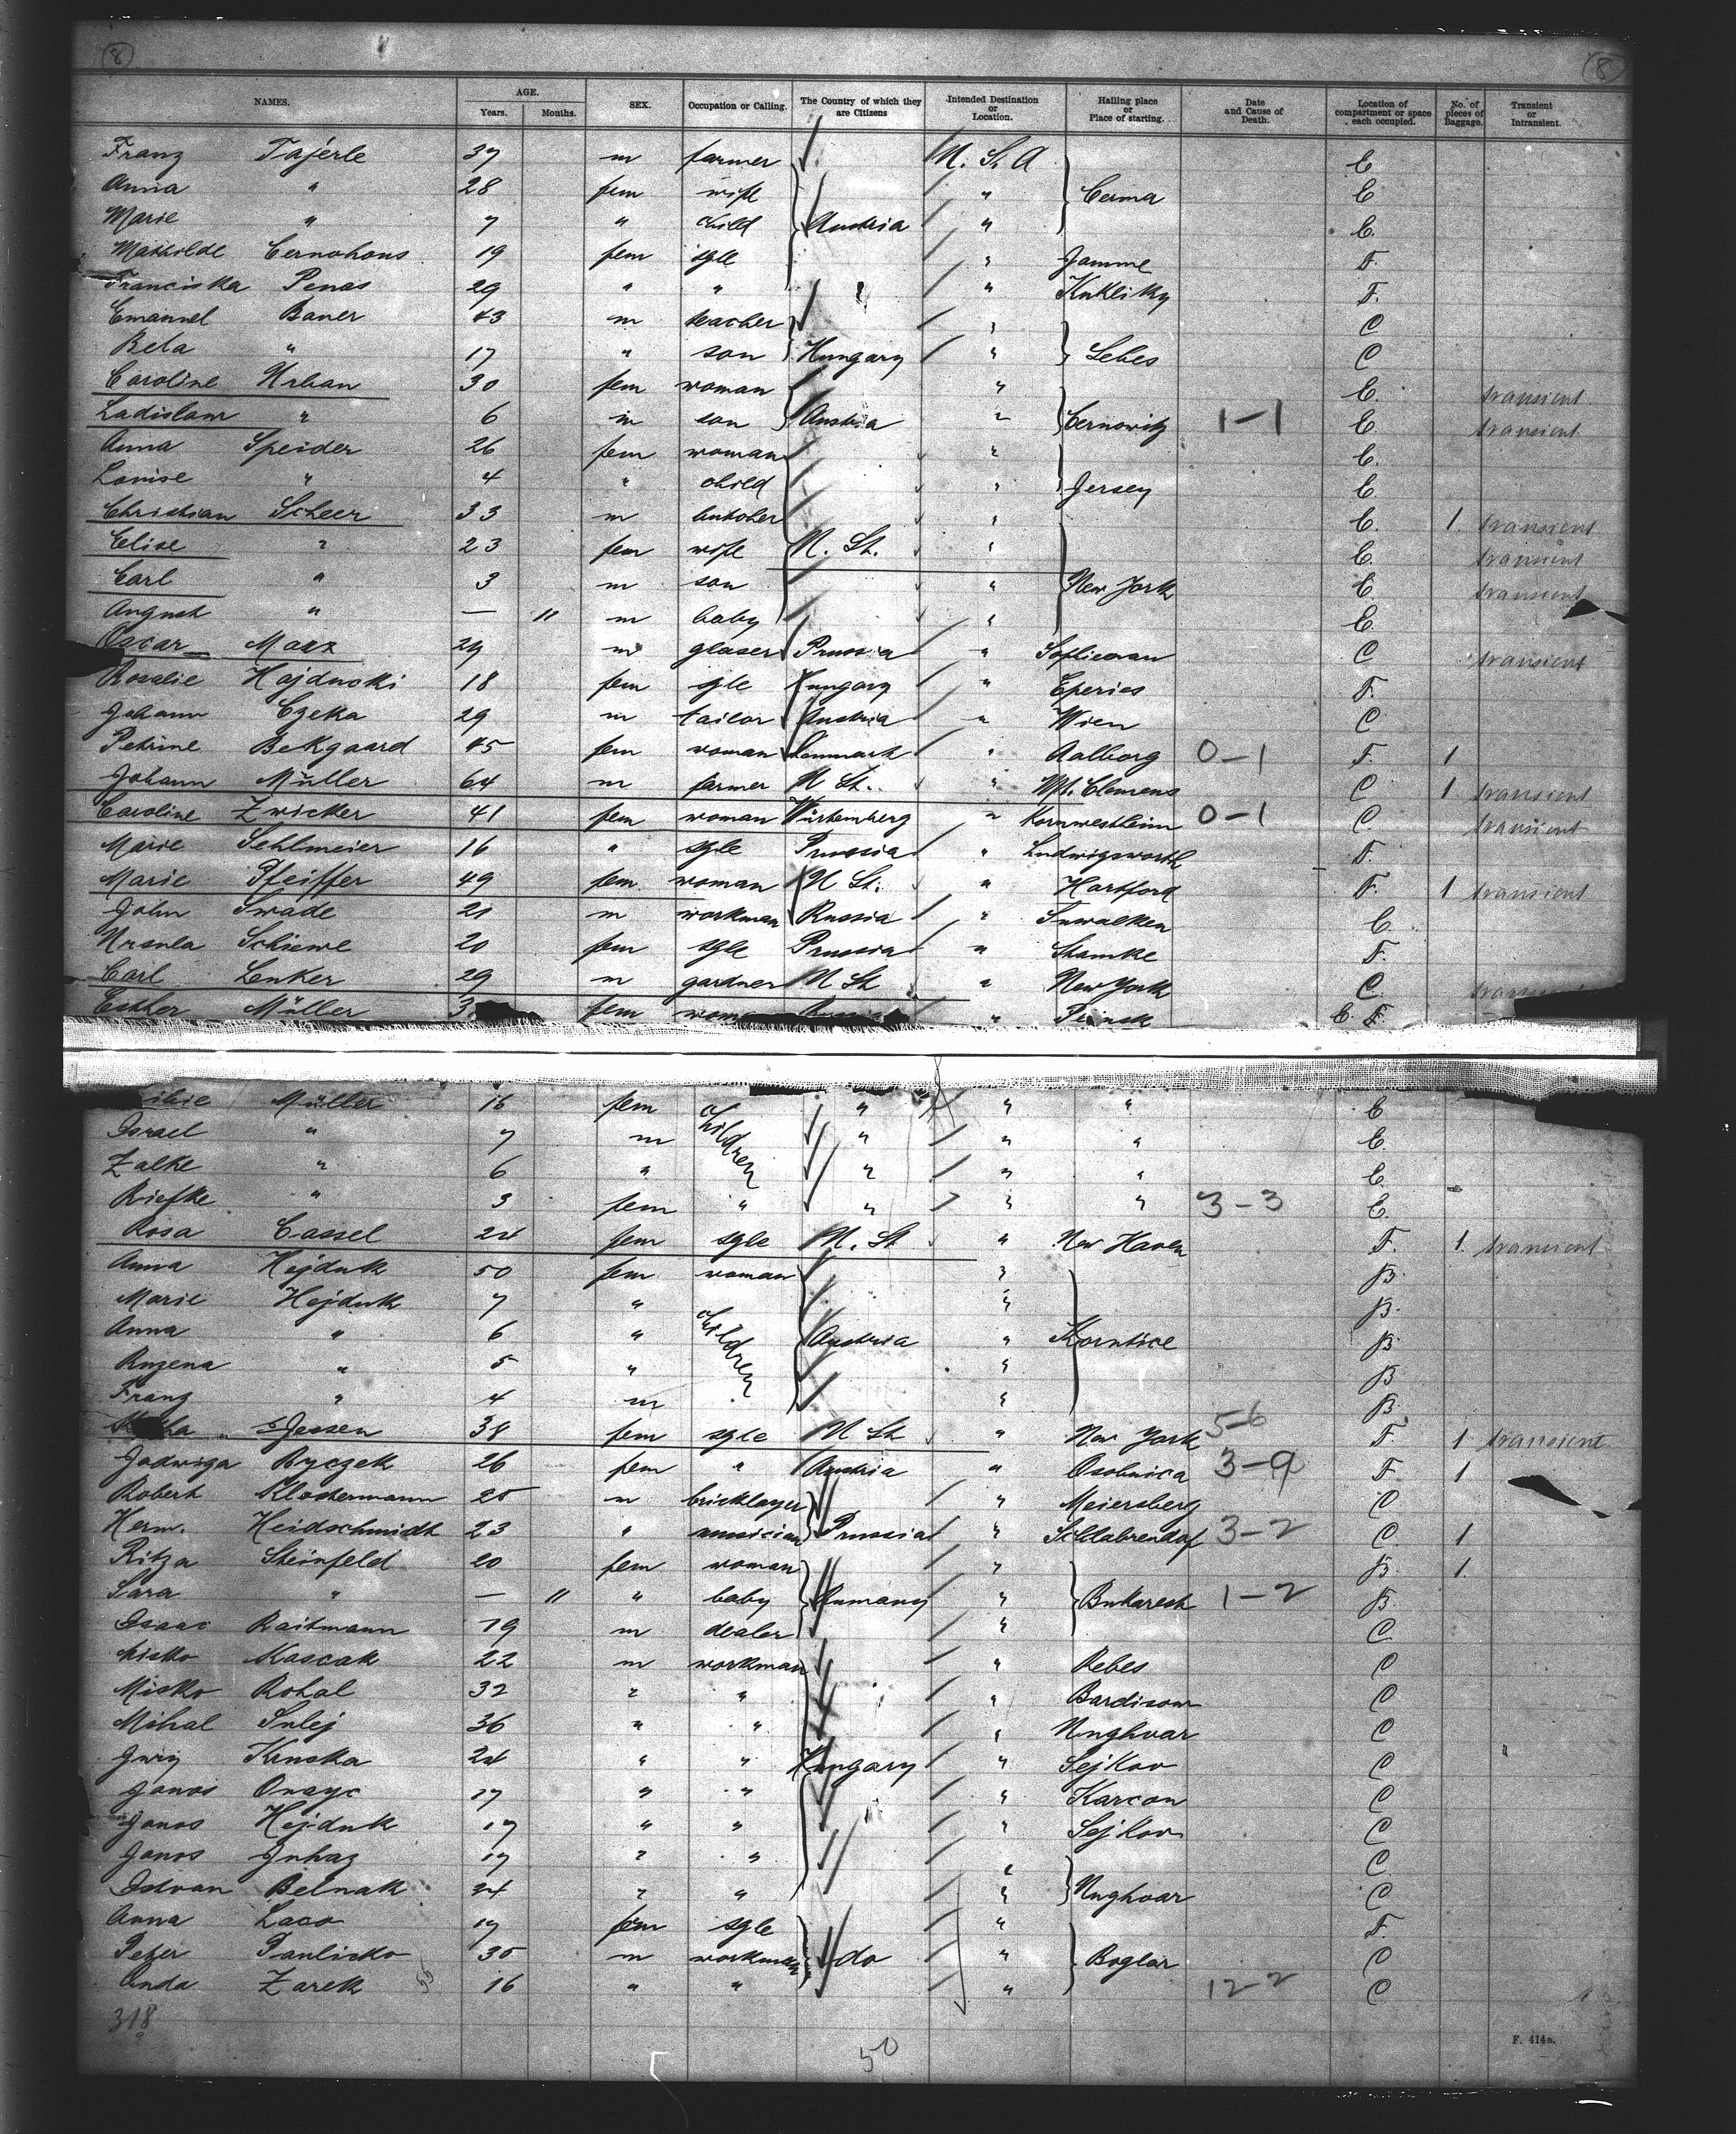 8 8
NAMES. AGE. Years. Months. SEX. Occupation or Calling. The Country of which they are Citizens Intended Destination or Location. Hailing place or Place of starting. Date and Cause of Death. Location of compartment or space each occupied. No. of pieces of Baggage. Transient or Intransient.
Franz Tajerle 37 m farmer U. S. A C
Anna " 28 fem wife " Cerma C
Marie " 7 " child Austria " C.
Mathilde Cernohous 19 fem sgle " Jamme F.
Franciska Penas 29 " " " Kukliky F.
Emanuel Bauer 43 m teacher " C
Bela " 17 " son Hungary " Lebes C
Caroline Urban 30 fem woman " C. transient
Ladislaw " 6 m son Austria " Cernowitz 1-1 C. transient
Anna Speider 26 fem woman " C.
Louise " 4 " child " Jersey C.
Christian Scheer 33 m butcher " C. 1. transient
Elise " 23 fem wife U. St. " C. transient
Carl " 3 m son " New York C. transient
August " — 11 m baby " C.
Oscar Marx 29 m glaser Prussia " C transient
Rosalie Hajducki 18 fem sgle Hungary " Eperies F.
Johann Czeka 29 m tailor Austria " Wien C
Petrine Bekgaard 45 fem woman Denmark " Aalborg 0-1 F. 1
Johann Müller 64 m farmer U St. " Mt. Clemens C 1 transient
Caroline Zwicker 41 fem woman Würtemberg " Kornwestheim 0-1 C. transient
Marie Sehlmeier 16 " sgle Prussia " Ludwigsworth F.
Marie Pfeiffer 49 fem woman U St. " Hartford F. 1 transient
John Swade 21 m workman Russia " Suwalken C.
Ursula Schiewe 20 fem sgle Prussia " Stamke F.
Carl Lenker 29 m gardner U St " New York C. transient
Esther Müller fem Russia " Pinsk C. F.
Müller 16 fem children " " " C
Israel " 7 m " " " C.
Zalke " 6 " " " " C.
Riefke " 3 fem " " " " 3-3 C.
Rosa Cassel 24 fem sgle U. St " New Haven F. 1 transient
Anna Hejduk 50 fem woman " B.
Marie Hejduk 7 " children " B.
Anna " 6 " Austria " Korntice B.
Ruzena " 5 " " B.
Franz " 4 m " B.
Jessen 38 fem sgle U St " New York 5-6 F. 1 transient
Jadwiga Ryczek 26 fem " Austria " Osobnica 3-9 F. 1
Robert Klostermann 25 m bricklayer " Meiersberg C
Herm. Heidschmidt 23 " musician Prussia " Schlabrendorf 3-2 C. 1
Ritza Steinfeld 20 fem woman " B. 1.
Sara " — 11 " baby Rumany " Bukarest 1-2 B
Isaac Raitmann 19 m dealer " C
Misko Kascak 22 m workman " Rebes C
Misko Rohal 32 " " " C
Mihal Sulej 36 " " " Unghvar C
Juriy Kruska 24 " " Hungary " Sejkov C
Janos Onayc 17 " " " Karcon C
Janos Hejduk 17 " " " Sejkov C
Janos Juhaz 17 " " " C
Istvan Belnak 24 " " " Unghvar C
Anna Laco 17 fem sgle " F.
Peter Paulisko 35 m workman do " Boglar C
Anda Zarek 16 " " " 12-2 C
318
50
F. 414a.